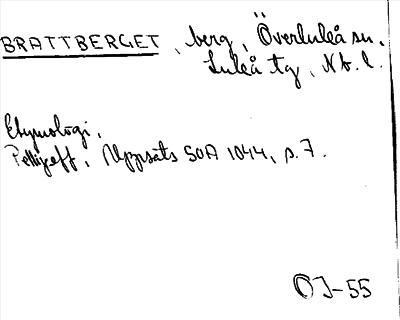 BRATTBERGET, berg, Överluleå sn,
Luleå tg, Nb. l.
Etymologi,
Pettijeff, Uppsats SOA 1044, s. 7.
OJ-55